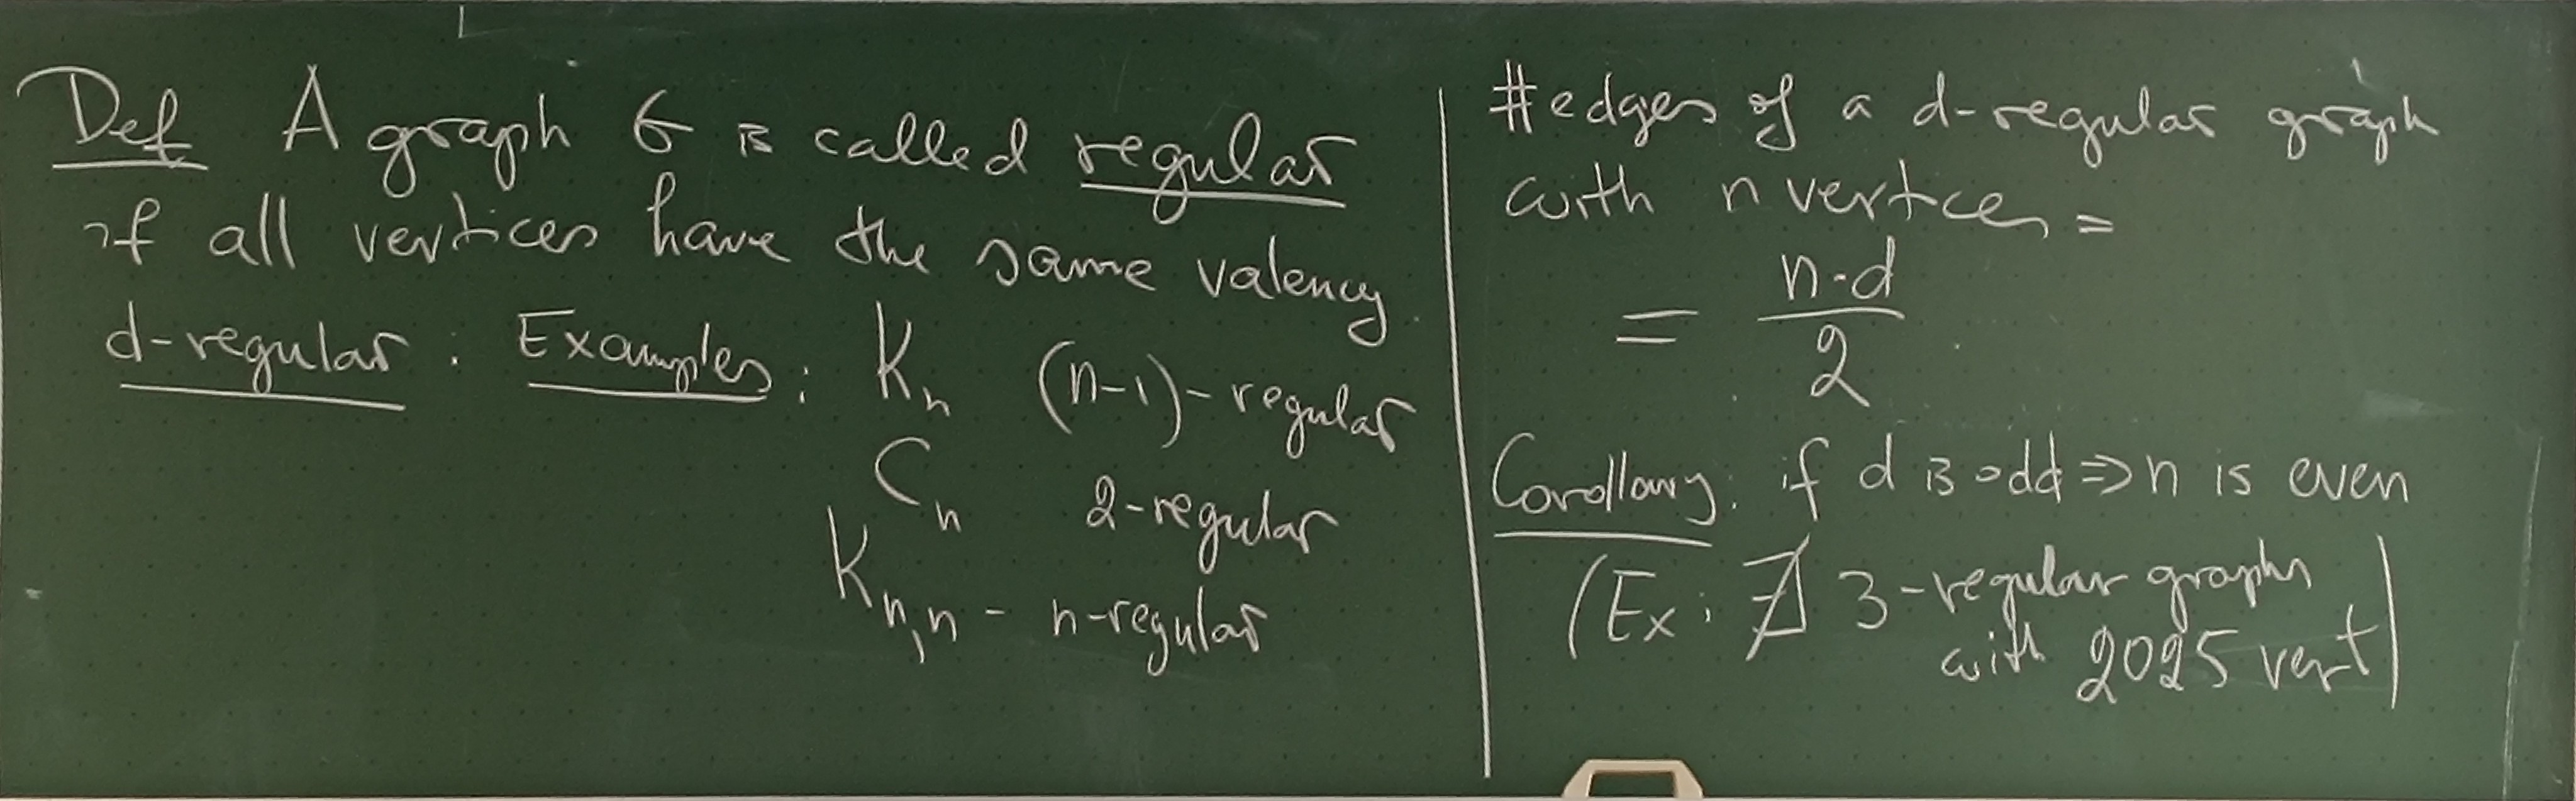 Def A graph G is called regular
if all vertices have the same valency.
d-regular : Examples : Kn (n-1)-regular
Cn 2-regular
Kn,n - n-regular
#edges of a d-regular graph
with n vertices =
= n·d/2
Corollary: if d is odd ⇒ n is even
(Ex: ∄ 3-regular graphs
with 2025 vert)